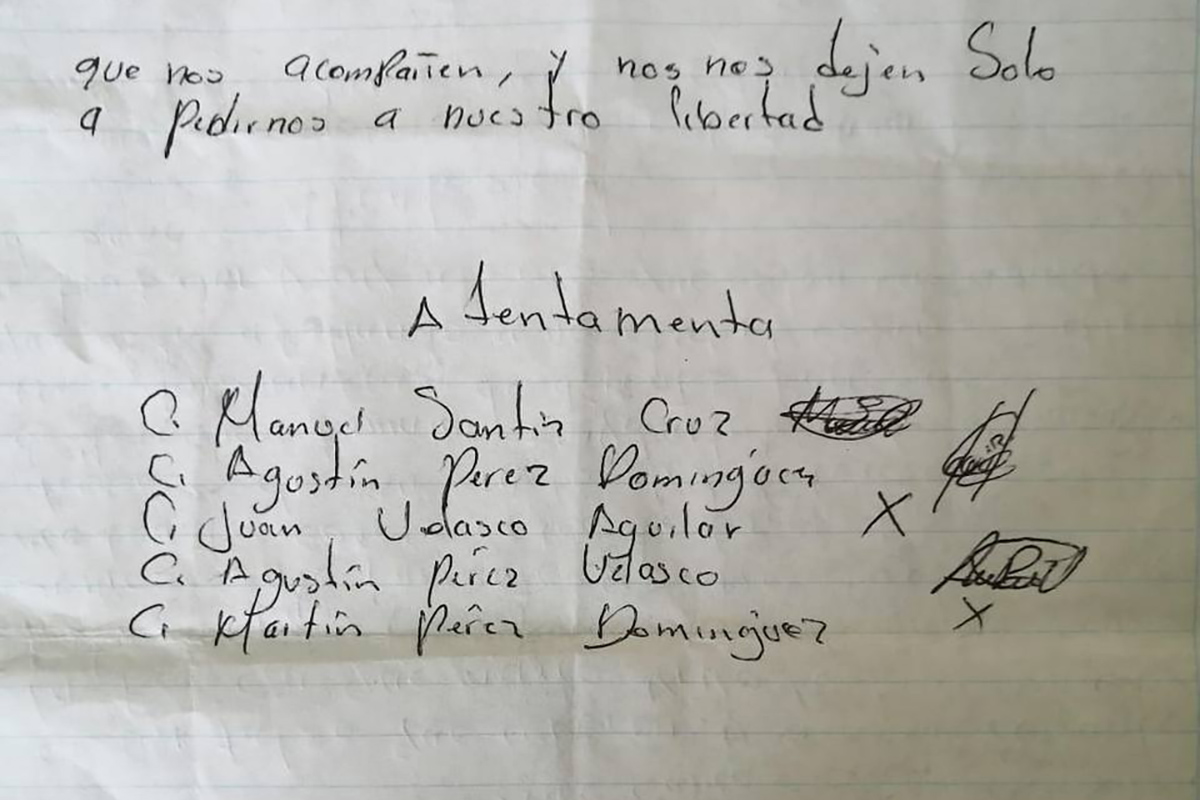 que nos acompañen, y nos nos dejen Solo
a Pedirnos a nuestro libertad
Atentamenta
C. Manuel Santiz Cruz
C. Agostín Perez Domingúez
C. Juan Velasco Aguilar X
C. Agustín Pérez Velasco
C. Martín Pérez Dominguez X